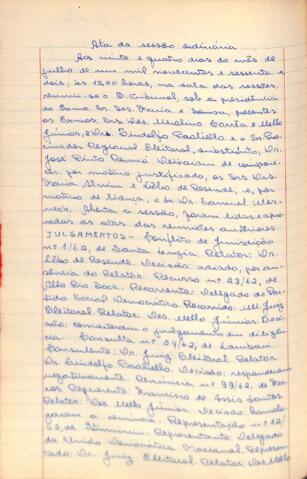 Ata da sessão ordinária
Aos vinte e quatro dias do mês de
julho de um mil novecentos e sessenta e
dois, às 15,00 horas, na sala das sessões,
reuniu-se o E. Tribunal, sob a presidência
do Exmo. Sr. Des. Faria e Sousa, presentes
os Exmos. Srs. Des. Merolino Corrêa e Mello
Júnior, e Drs. Lindolfo Paoliello e o Sr. Pro-
curador Regional Eleitoral, substituto, Dr.
José Pinto Renna. Deixaram de compare-
cer, por motivo justificado, os Srs. Drs.
Faria Alvim e Lélio de Resende, e, por
motivo de licença, o Sr. Dr. Samuel Wer-
neck. Aberta a sessão, foram lidas e apro-
vadas as atas das reuniões anteriores.
JULGAMENTOS - Conflito de jurisdição
nº 1/62, de Santa Luzia. Relator: Dr.
Lélio de Resende. Decisão: adiado, por au-
sência do Relator. Recurso nº 23/62, de
Alto Rio Doce. Recorrente: Delegado do Par-
tido Social Democrático. Recorrido: M. Juiz
Eleitoral. Relator: Des. Mello Júnior. Deci-
são: converteram o julgamento em diligên-
cia. Consulta nº 54/62, de Lambari.
Consulente: Dr. Juiz Eleitoral. Relator:
Dr. Lindolfo Paoliello. Decisão: responderam
negativamente. Renúncia nº 99/62, de
Requerente: Francisco de Assis Santos.
Relator: Des. Mello Júnior. Decisão: homolo-
garam a renúncia. Representação nº 12/
62, de Itumirim. Representante: Delegado
da União Democrática Nacional. Represen-
tado: Dr. Juiz Eleitoral. Relator: Des. Mello